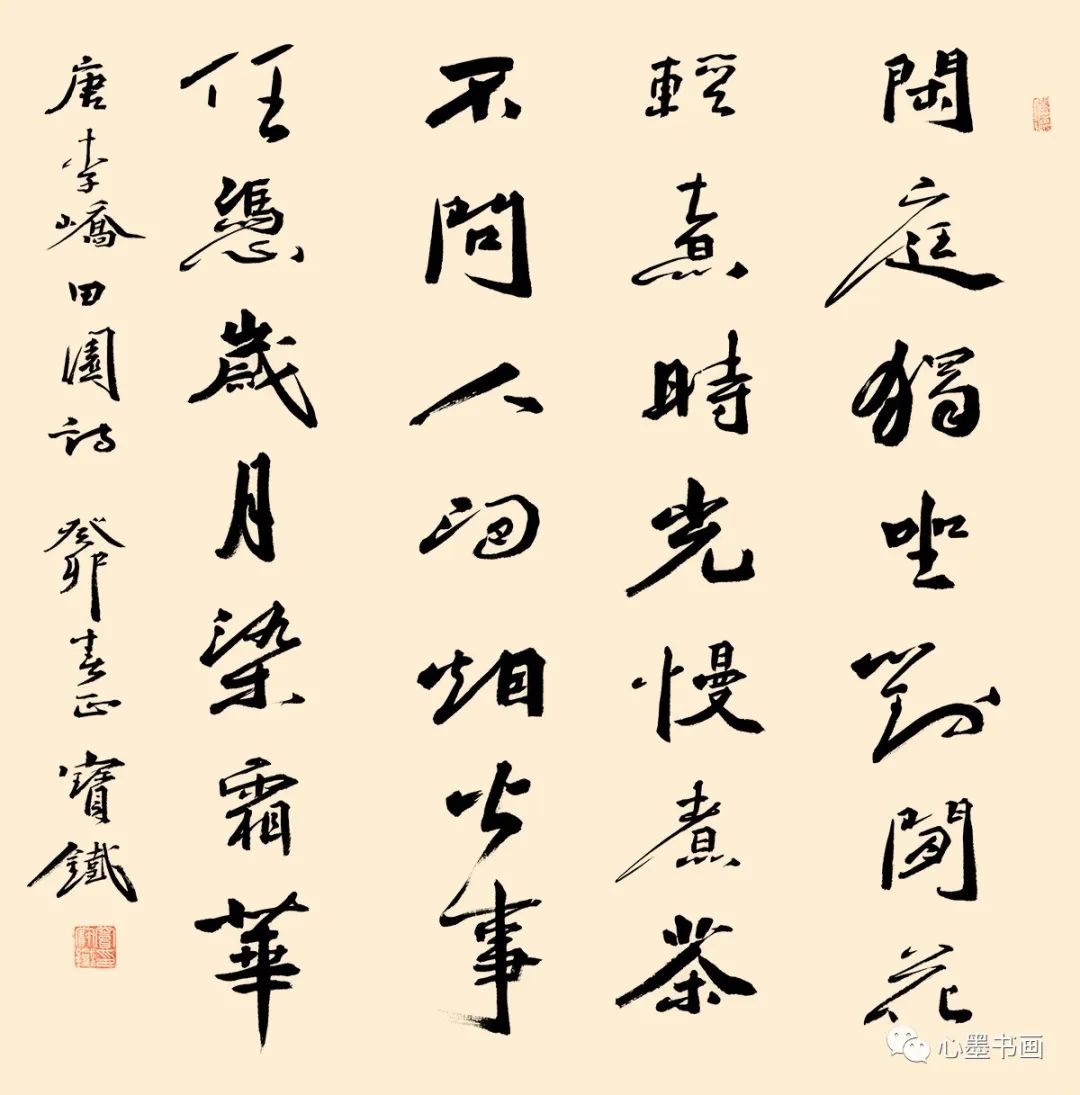 閑庭獨坐對閒花
輕煮時光慢煮茶
不問人間烟火事
任憑歲月染霜華
唐李嶠田園詩 癸卯春正 寶鐵
心墨书画